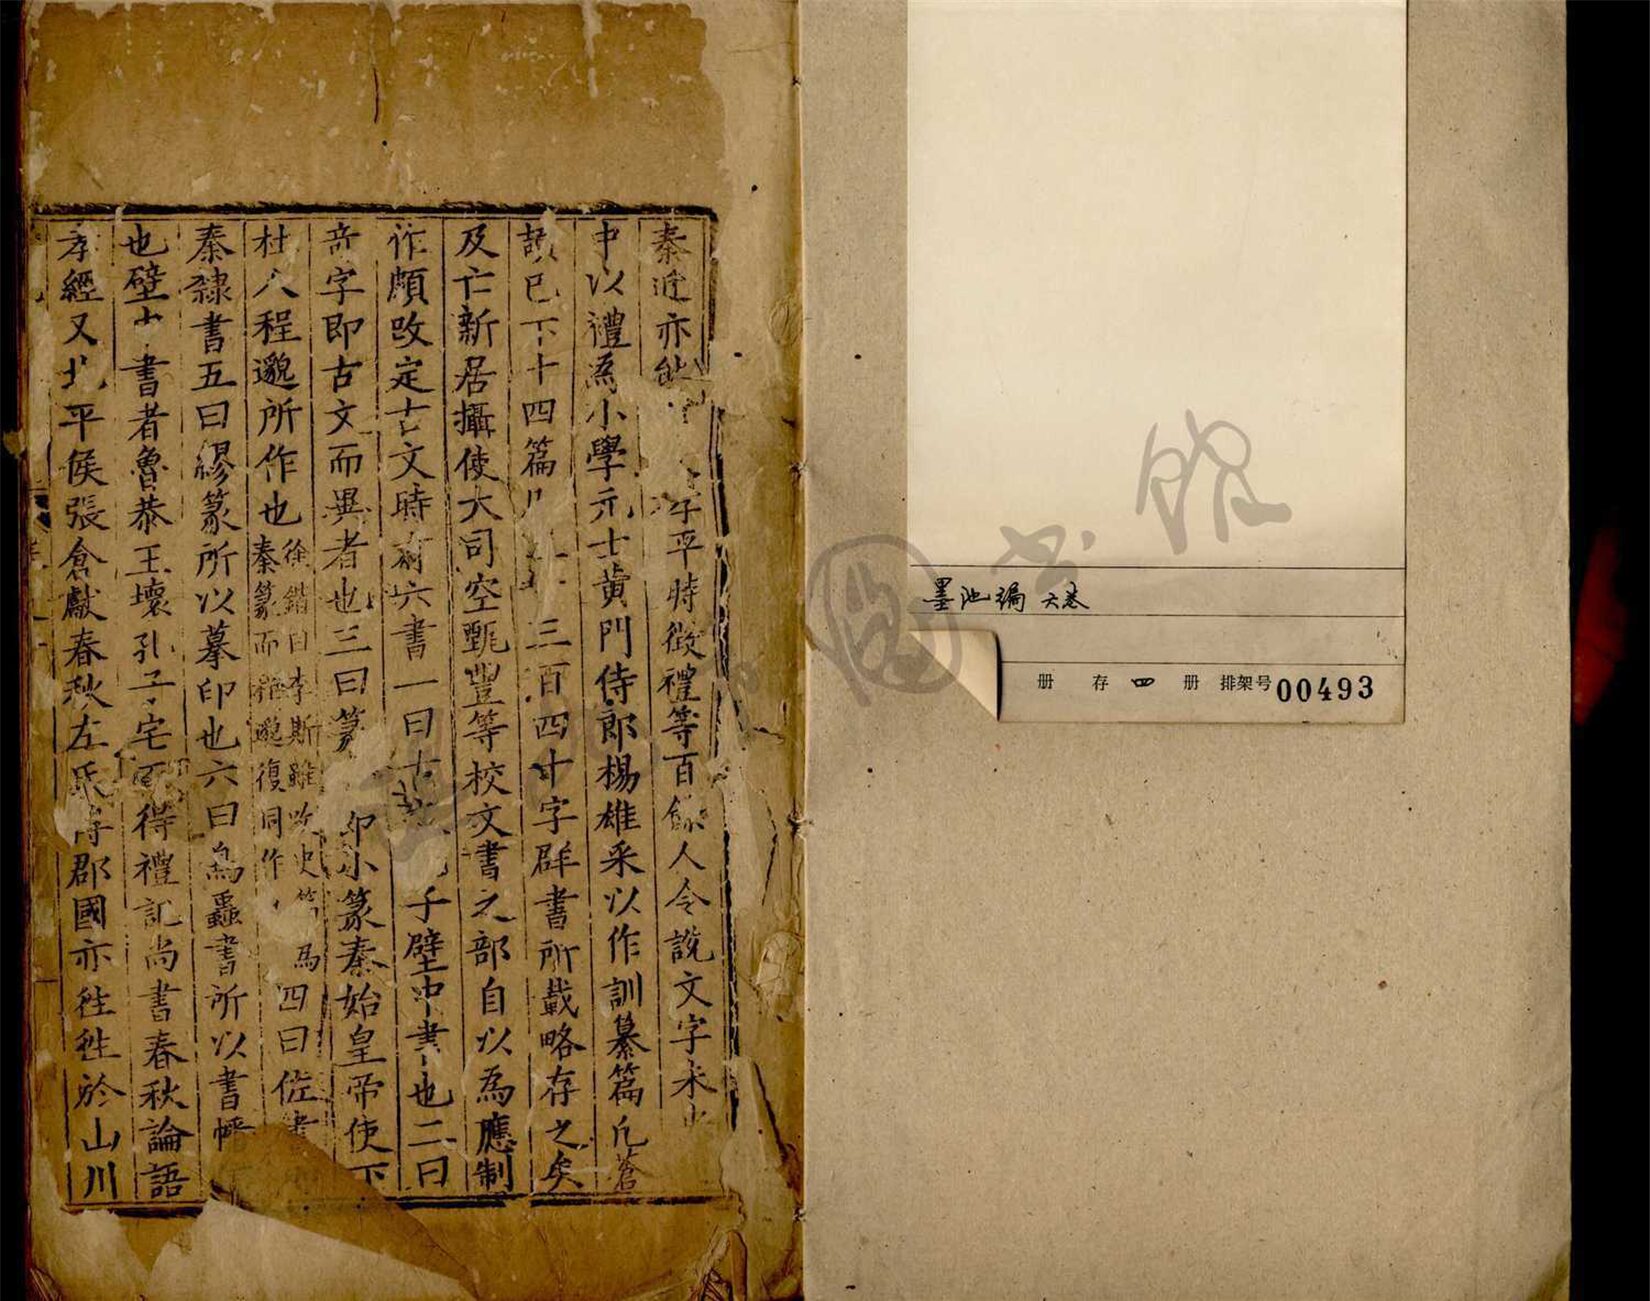 秦近亦能平時徵禮等百餘人令說文字未
中以禮為小學元士黃門侍郎楊雄采以作訓纂篇凡蒼
頡已下十四篇三百四十字群書所載略存之矣
及亡新居攝使大司空甄豐等校文書之部自以為應制
作頗改定古文時有六書一曰古子壁中書也二曰
奇字即古文而異者也三曰篆即小篆秦始皇帝使下
杜人程邈所作也徐鍇曰李斯雖改史篇為
秦篆而程邈復同作四曰佐書
秦隸書五曰繆篆所以摹印也六曰鳥蟲書所以書幡
也壁中書者魯恭王壞孔子宅而得禮記尚書春秋論語
孝經又北平侯張倉獻春秋左氏傳郡國亦往往於山川
館
書
圖
墨池編 六卷
册 存 四 册 排架号 00493